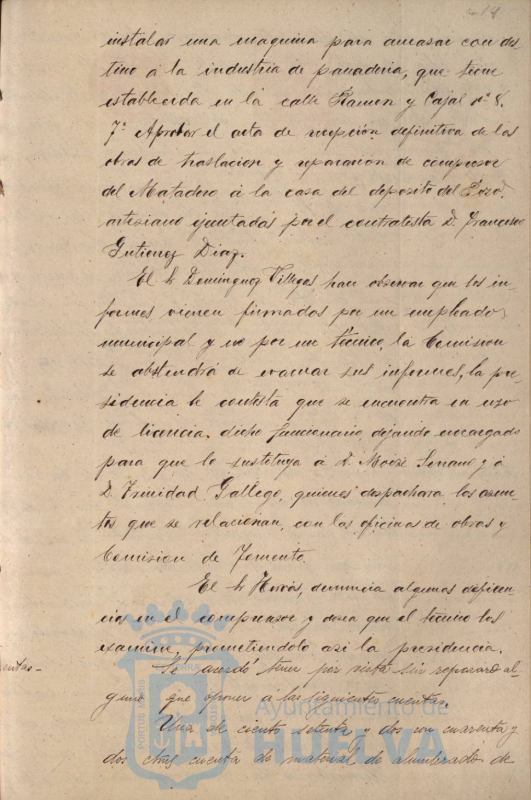 instalar una maquina para amasar con des
tino á la industria de panaderia, que tiene
establecida en la calle Ramon y Cajal nº 8.
7º Aprobar el acta de recepción definitiva de las
obras de traslacion y reparación de compresor
del Matadero á la casa del deposito del Pozo
artesiano ejecutadas por el contratista D. Francisco
Gutierrez Diaz.
El Sr Dominguez Villegas hace observar que los in
formes vienen firmados por un empleado
municipal y no por un técnico, la Comision
se abstendrá de evacuar sus informes, la pre
sidencia le contesta que se encuentra en uso
de licencia dicho funcionario, dejando encargado
para que lo sustituya á D. Moisé Serrano y á
D. Trinidad Gallego, quienes despachara los asun
tos que se relacionan, con las oficinas de obras y
Comision de Fomento.
El Sr denuncia algunas deficien
cia en el compresor y desea que el técnico los
examine, prometiendolo asi la presidencia.
Se acordó tener por vista sin reparo al
guno que oponer á las siguientes cuentas.
cuentas-
Una de ciento setenta y dos con cuarenta y
dos ctms cuenta de material de alumbrado de
Ayuntamiento de
HUELVA
PORTUS MARIS